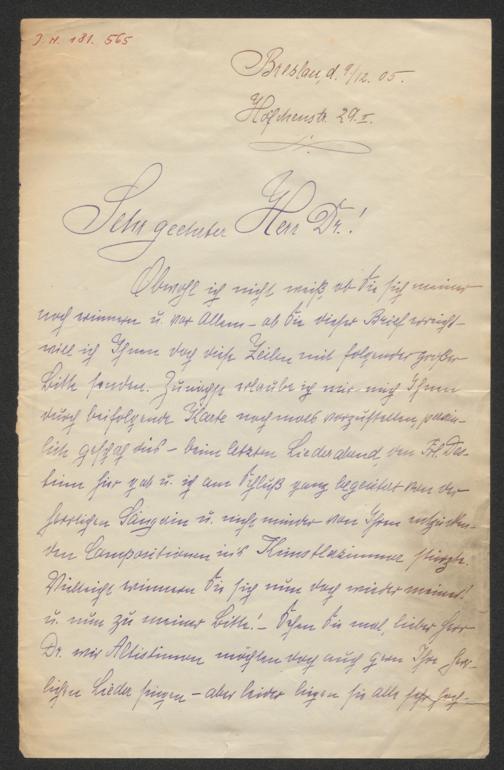 J. N. 181. 565
Breslau, d. 9/12. 05.
Höfchenstr. 29. II.
Sehr geehrter Herr Dr.!
Obwohl ich nicht weiß, ob Sie sich meiner
noch erinnern u. vor Allem – ob Sie dieser Brief erreicht –
will ich Ihnen doch diese Zeilen mit folgender großer
Bitte senden. Zunächst erlaube ich mir mich Ihnen
durch beifolgende Karte nochmals vorzustellen, persön-
lich geschah dies – beim letzten Liederabend, den Frl.
hier gab u. ich am Schluß ganz begeistert von der
herrlichen Sängerin u. nicht minder von Ihren entzücken-
den Compositionen ins Künstlerzimmer stürzte.
Vielleicht erinnern Sie sich nun doch wieder meiner!
u. nun zu meiner Bitte! – Sehen Sie mal, lieber Herr
Dr. wir Altistinnen möchten doch auch gern Ihre herr-
lichen Lieder singen – aber leider liegen sie alle sehr hoch –